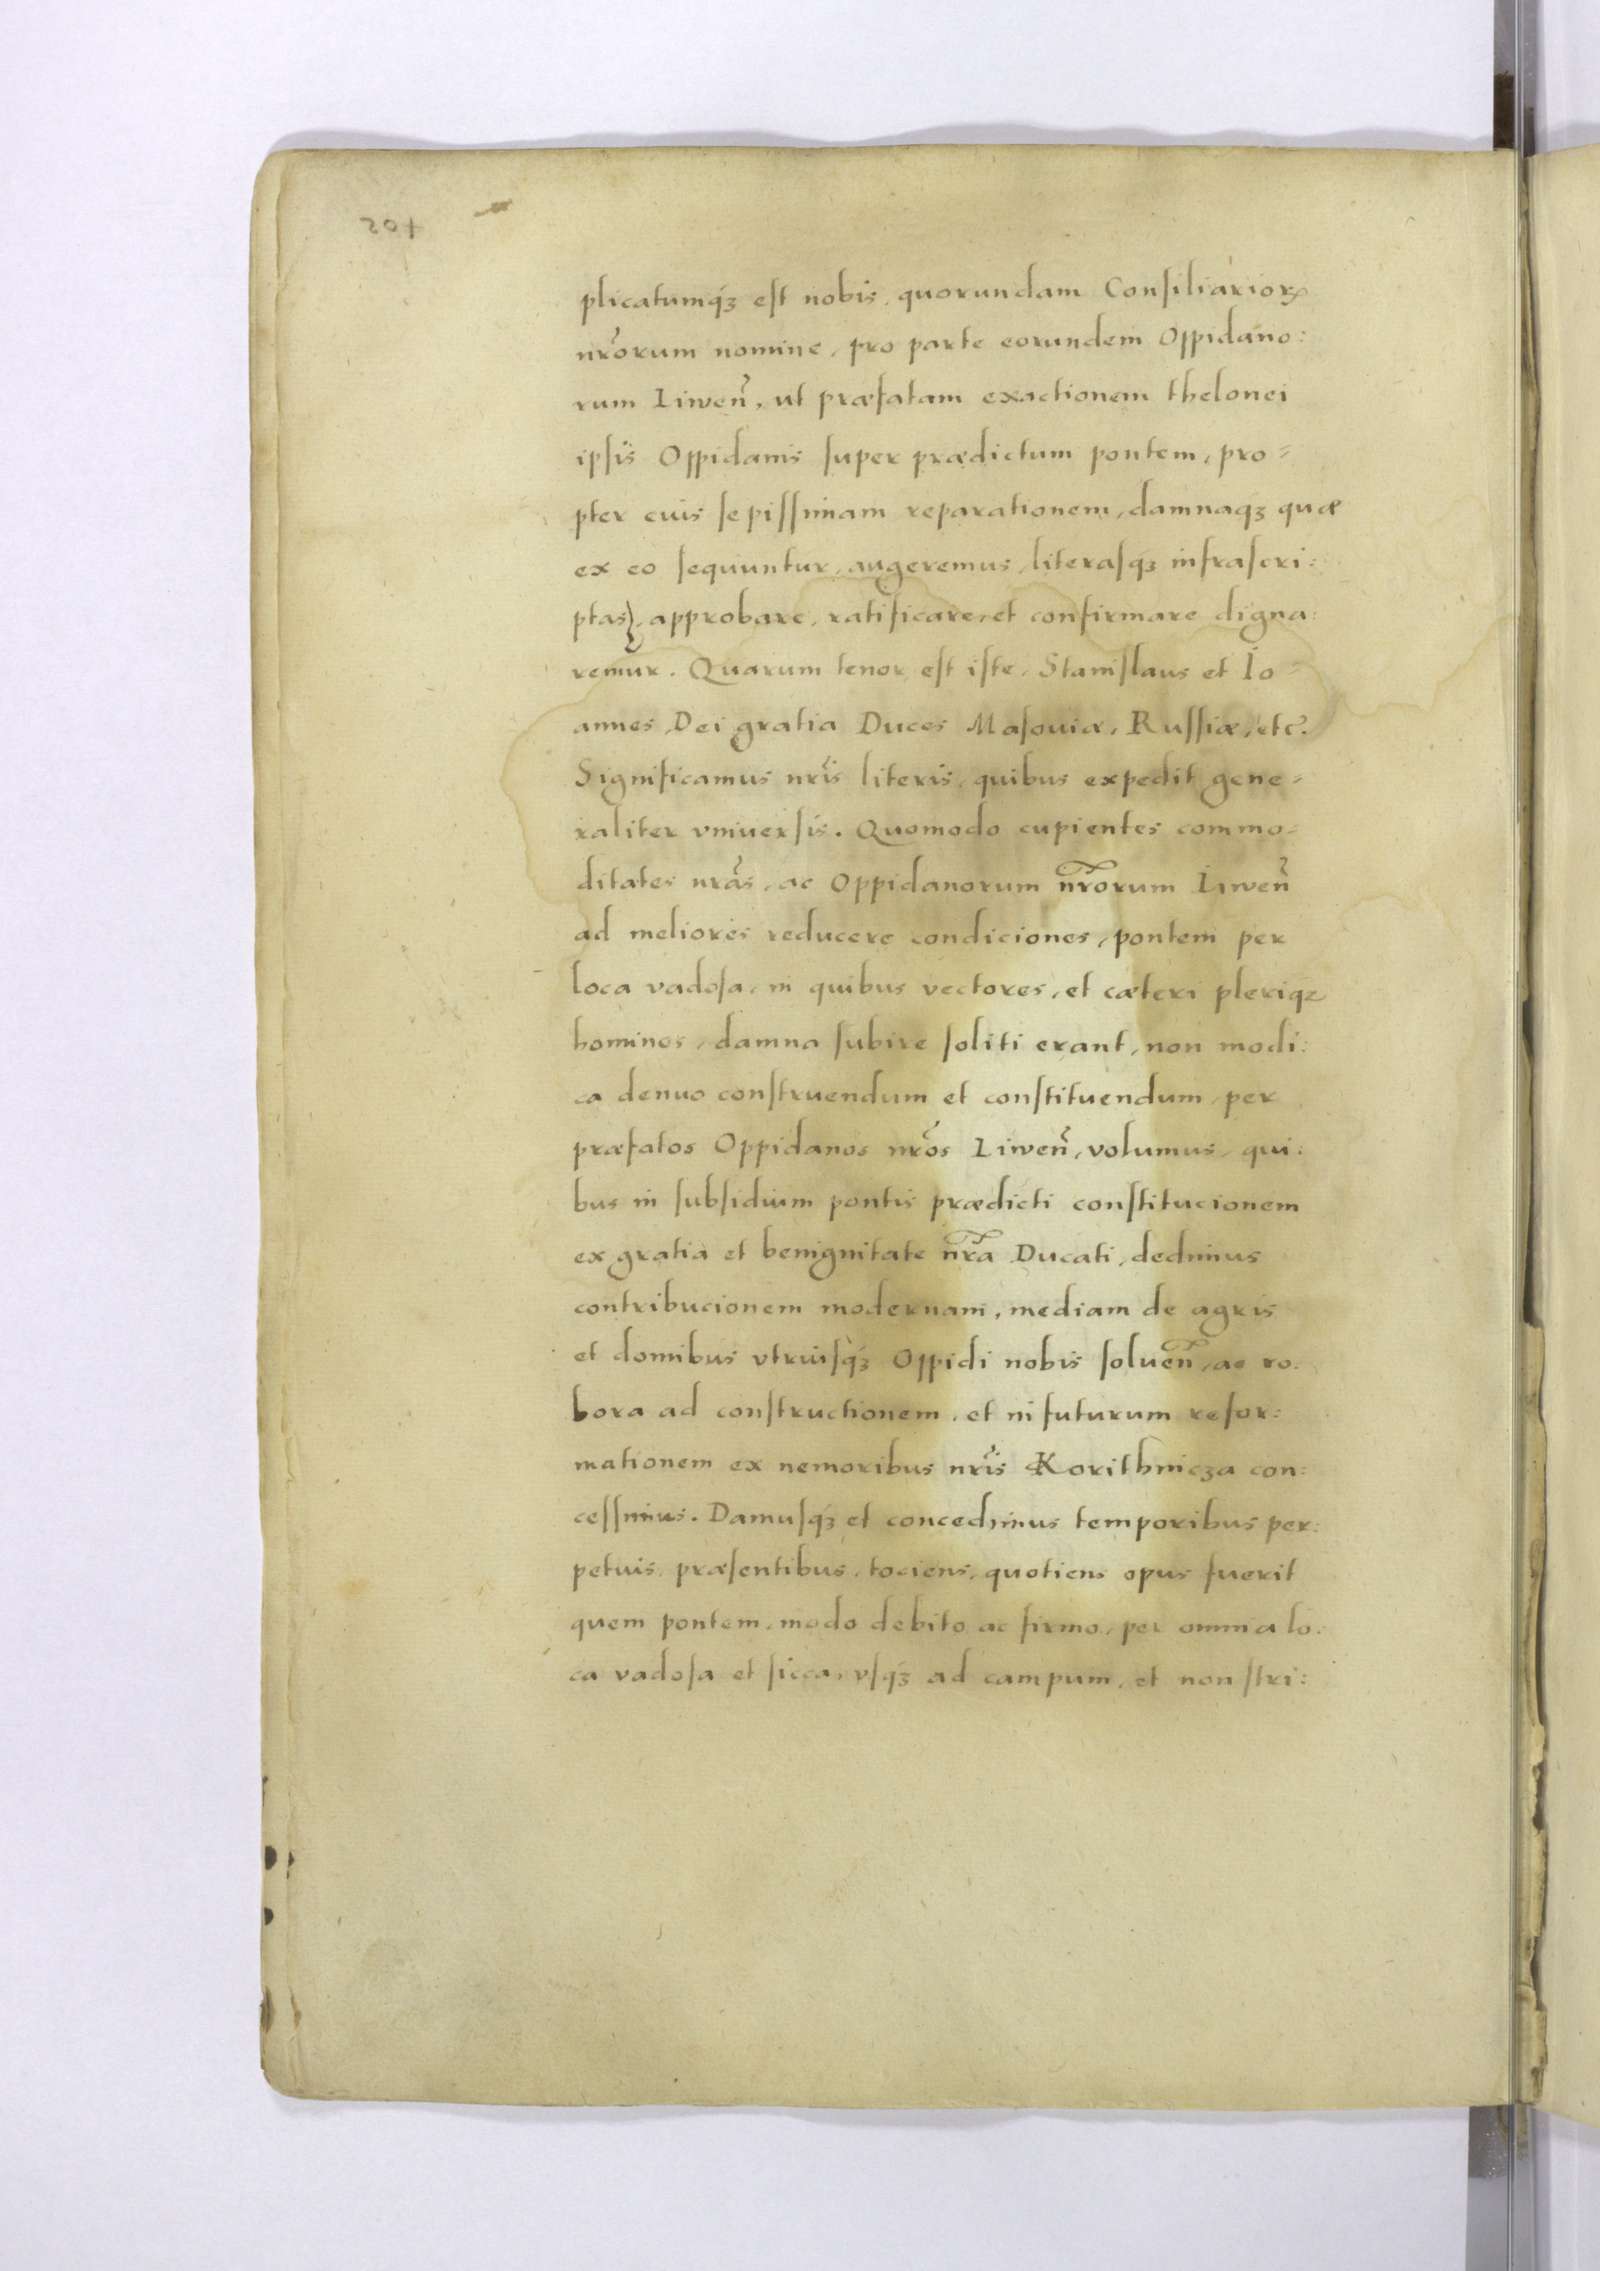 plicatumq́ꝫ eſt nobis, quorundam Conſiliarioꝝ
nr̃orum nomine, pro parte eorundem Oppidano:
rum Liwen̄, ut præfatam exactionem thelonei
ipſis Oppidanis ſuper prædictum pontem, pro-
pter eius ſepiſſimam reparationem, damnaq́ꝫ quæ
ex eo ſequuntur, augeremus, literaſq́ꝫ infraſcri:
ptas, approbare, ratificare, et confirmare digna:
remur. Quarum tenor eſt iſte. Staniſlaus et Io-
annes Dei gratia Duces Maſouiæ, Ruſſiæ, etc̃.
Significamus nr̃is literis, quibus expedit gene-
raliter vniuerſis. Quomodo cupientes commo-
ditates nr̃as, ac Oppidanorum nr̃orum Liwen̄
ad meliores reducere condiciones, pontem per
loca vadoſa, in quibus vectores, et cæteri pleriqꝫ
homines, damna ſubire ſoliti erant, non modi:
ca denuo conſtruendum et conſtituendum, per
præfatos Oppidanos nr̃os Liwen̄, volumus, qui:
bus in ſubſidium pontis prædicti conſtitucionem
ex gratia et benignitate nr̃a Ducali, dedimus
contribucionem modernam, mediam de agris
et domibus vtriuſq́ꝫ Oppidi nobis ſoluen̄, ac ro:
bora ad conſtructionem, et in futurum refor:
mationem ex nemoribus nr̃is Korithnicza con:
ceſſimus. Damuſq́ꝫ et concedimus temporibus per:
petuis, præſentibus, tociens, quotiens opus fuerit
quem pontem, modo debito ac firmo, per omnia lo:
ca vadoſa et ſicca, vſq́ꝫ ad campum, et non ſtri: